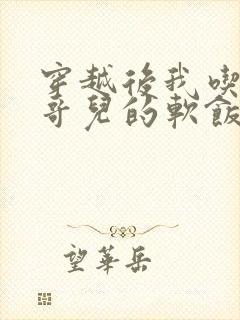 穿越後我喫
哥兒的軟飯
望華岳